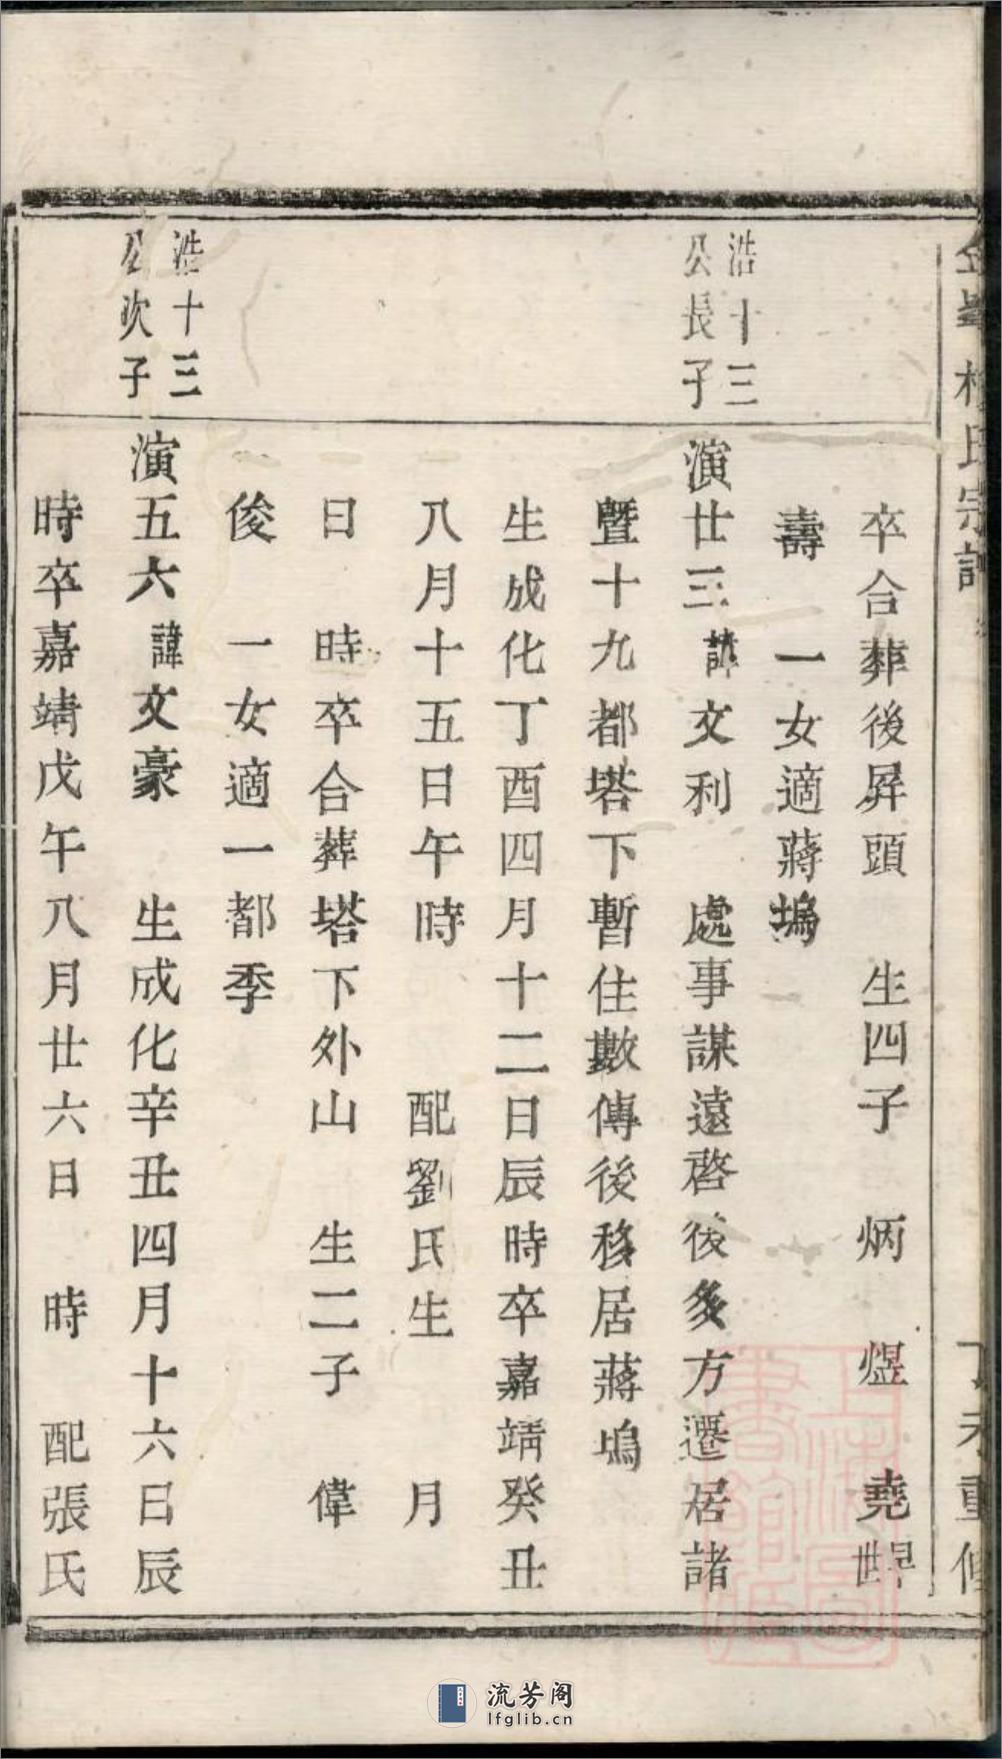 氏宗譜
重修
卒合葬後屏頭 生四子 炳 煜 堯
壽 一女適蔣塢
浩十三
公長子
演廿三諱文利 處事謀遠啓後多方遷居諸
暨十九都塔下暫住數傳後移居蔣塢
生成化丁酉四月十二日辰時卒嘉靖癸丑
八月十五日午時 配劉氏生 月
日 時卒合葬塔下外山 生二子 偉
俊 一女適一都季
浩十三
公次子
演五六諱文豪 生成化辛丑四月十六日辰
時卒嘉靖戊午八月廿六日 時 配張氏
上海圖書館藏
流芳阁
lfglib.cn